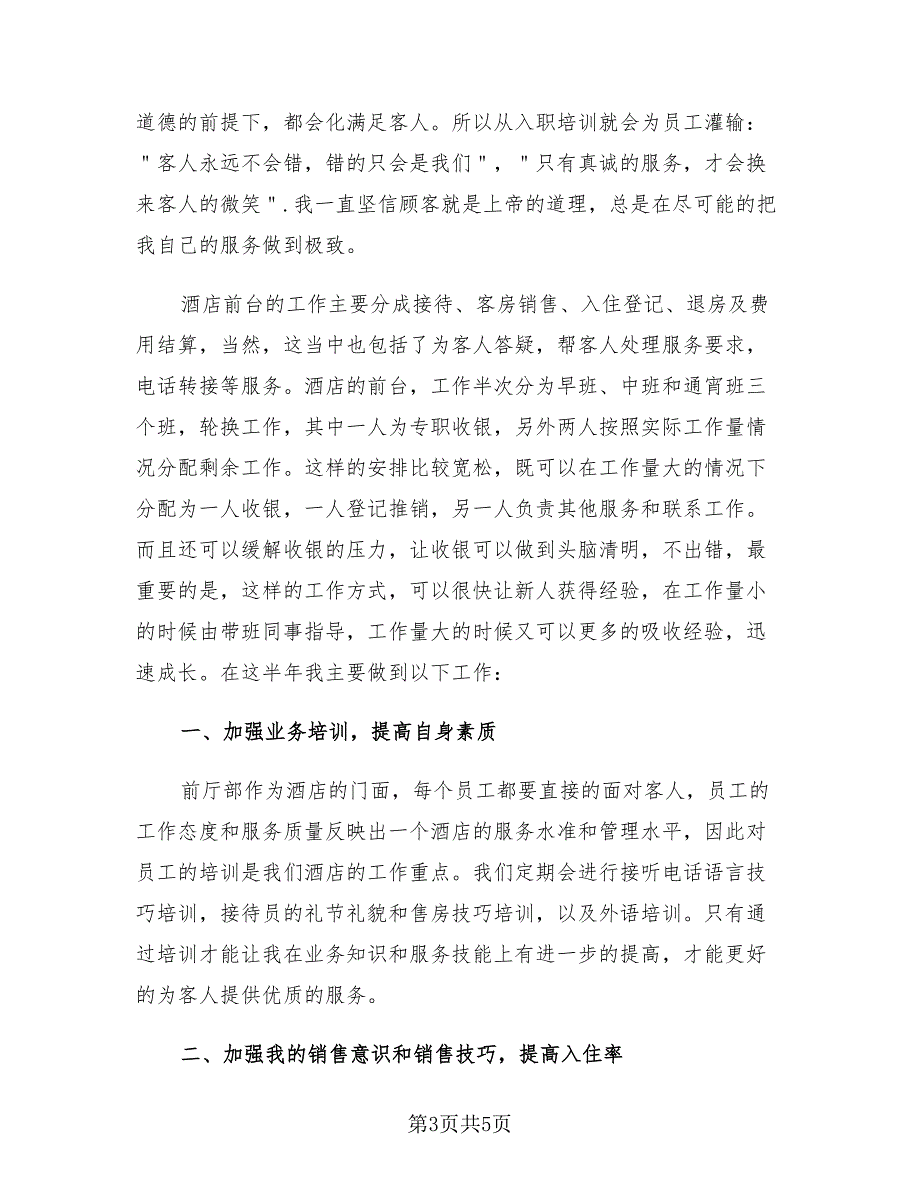 道德的前提下，都会化满足客人。所以从入职培训就会为员工灌输：
＂客人永远不会错，错的只会是我们＂，＂只有真诚的服务，才会换
来客人的微笑＂.我一直坚信顾客就是上帝的道理，总是在尽可能的把
我自己的服务做到极致。
酒店前台的工作主要分成接待、客房销售、入住登记、退房及费
用结算，当然，这当中也包括了为客人答疑，帮客人处理服务要求，
电话转接等服务。酒店的前台，工作半次分为早班、中班和通宵班三
个班，轮换工作，其中一人为专职收银，另外两人按照实际工作量情
况分配剩余工作。这样的安排比较宽松，既可以在工作量大的情况下
分配为一人收银，一人登记推销，另一人负责其他服务和联系工作。
而且还可以缓解收银的压力，让收银可以做到头脑清明，不出错，最
重要的是，这样的工作方式，可以很快让新人获得经验，在工作量小
的时候由带班同事指导，工作量大的时候又可以更多的吸收经验，迅
速成长。在这半年我主要做到以下工作：
一、加强业务培训，提高自身素质
前厅部作为酒店的门面，每个员工都要直接的面对客人，员工的
工作态度和服务质量反映出一个酒店的服务水准和管理水平，因此对
员工的培训是我们酒店的工作重点。我们定期会进行接听电话语言技
巧培训，接待员的礼节礼貌和售房技巧培训，以及外语培训。只有通
过培训才能让我在业务知识和服务技能上有进一步的提高，才能更好
的为客人提供优质的服务。
二、加强我的销售意识和销售技巧，提高入住率
第3页共5页